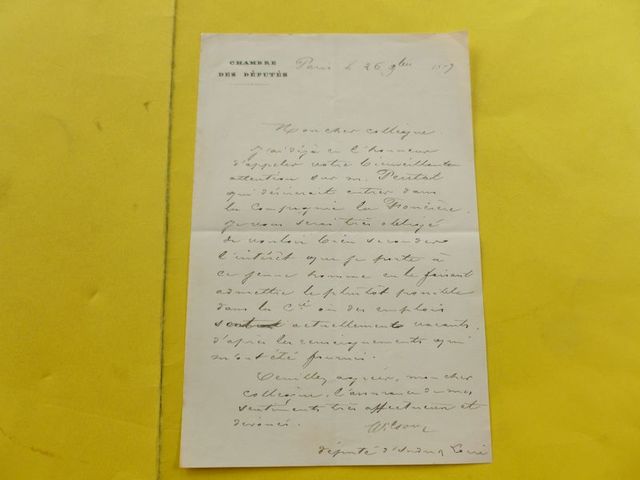 CHAMBRE
DES DÉPUTÉS
Paris le 26 9bre
Mon cher collègue
J'ai déjà eu l'honneur
d'appeler votre bienveillante
attention sur M.
qui désirerait entrer dans
la Compagnie la Foncière.
Je vous serai très obligé
de vouloir bien seconder
l'intérêt que je porte à
ce jeune homme en le faisant
admettre le plutôt possible
dans la Cie où des emplois
sont actuellement vacants,
d'après les renseignements qui
m'ont été fournis.
Veuillez agréer, mon cher
collègue, l'assurance de mes
sentiments très affectueux et
dévoués.
Wilson
député d'Indre & Loire